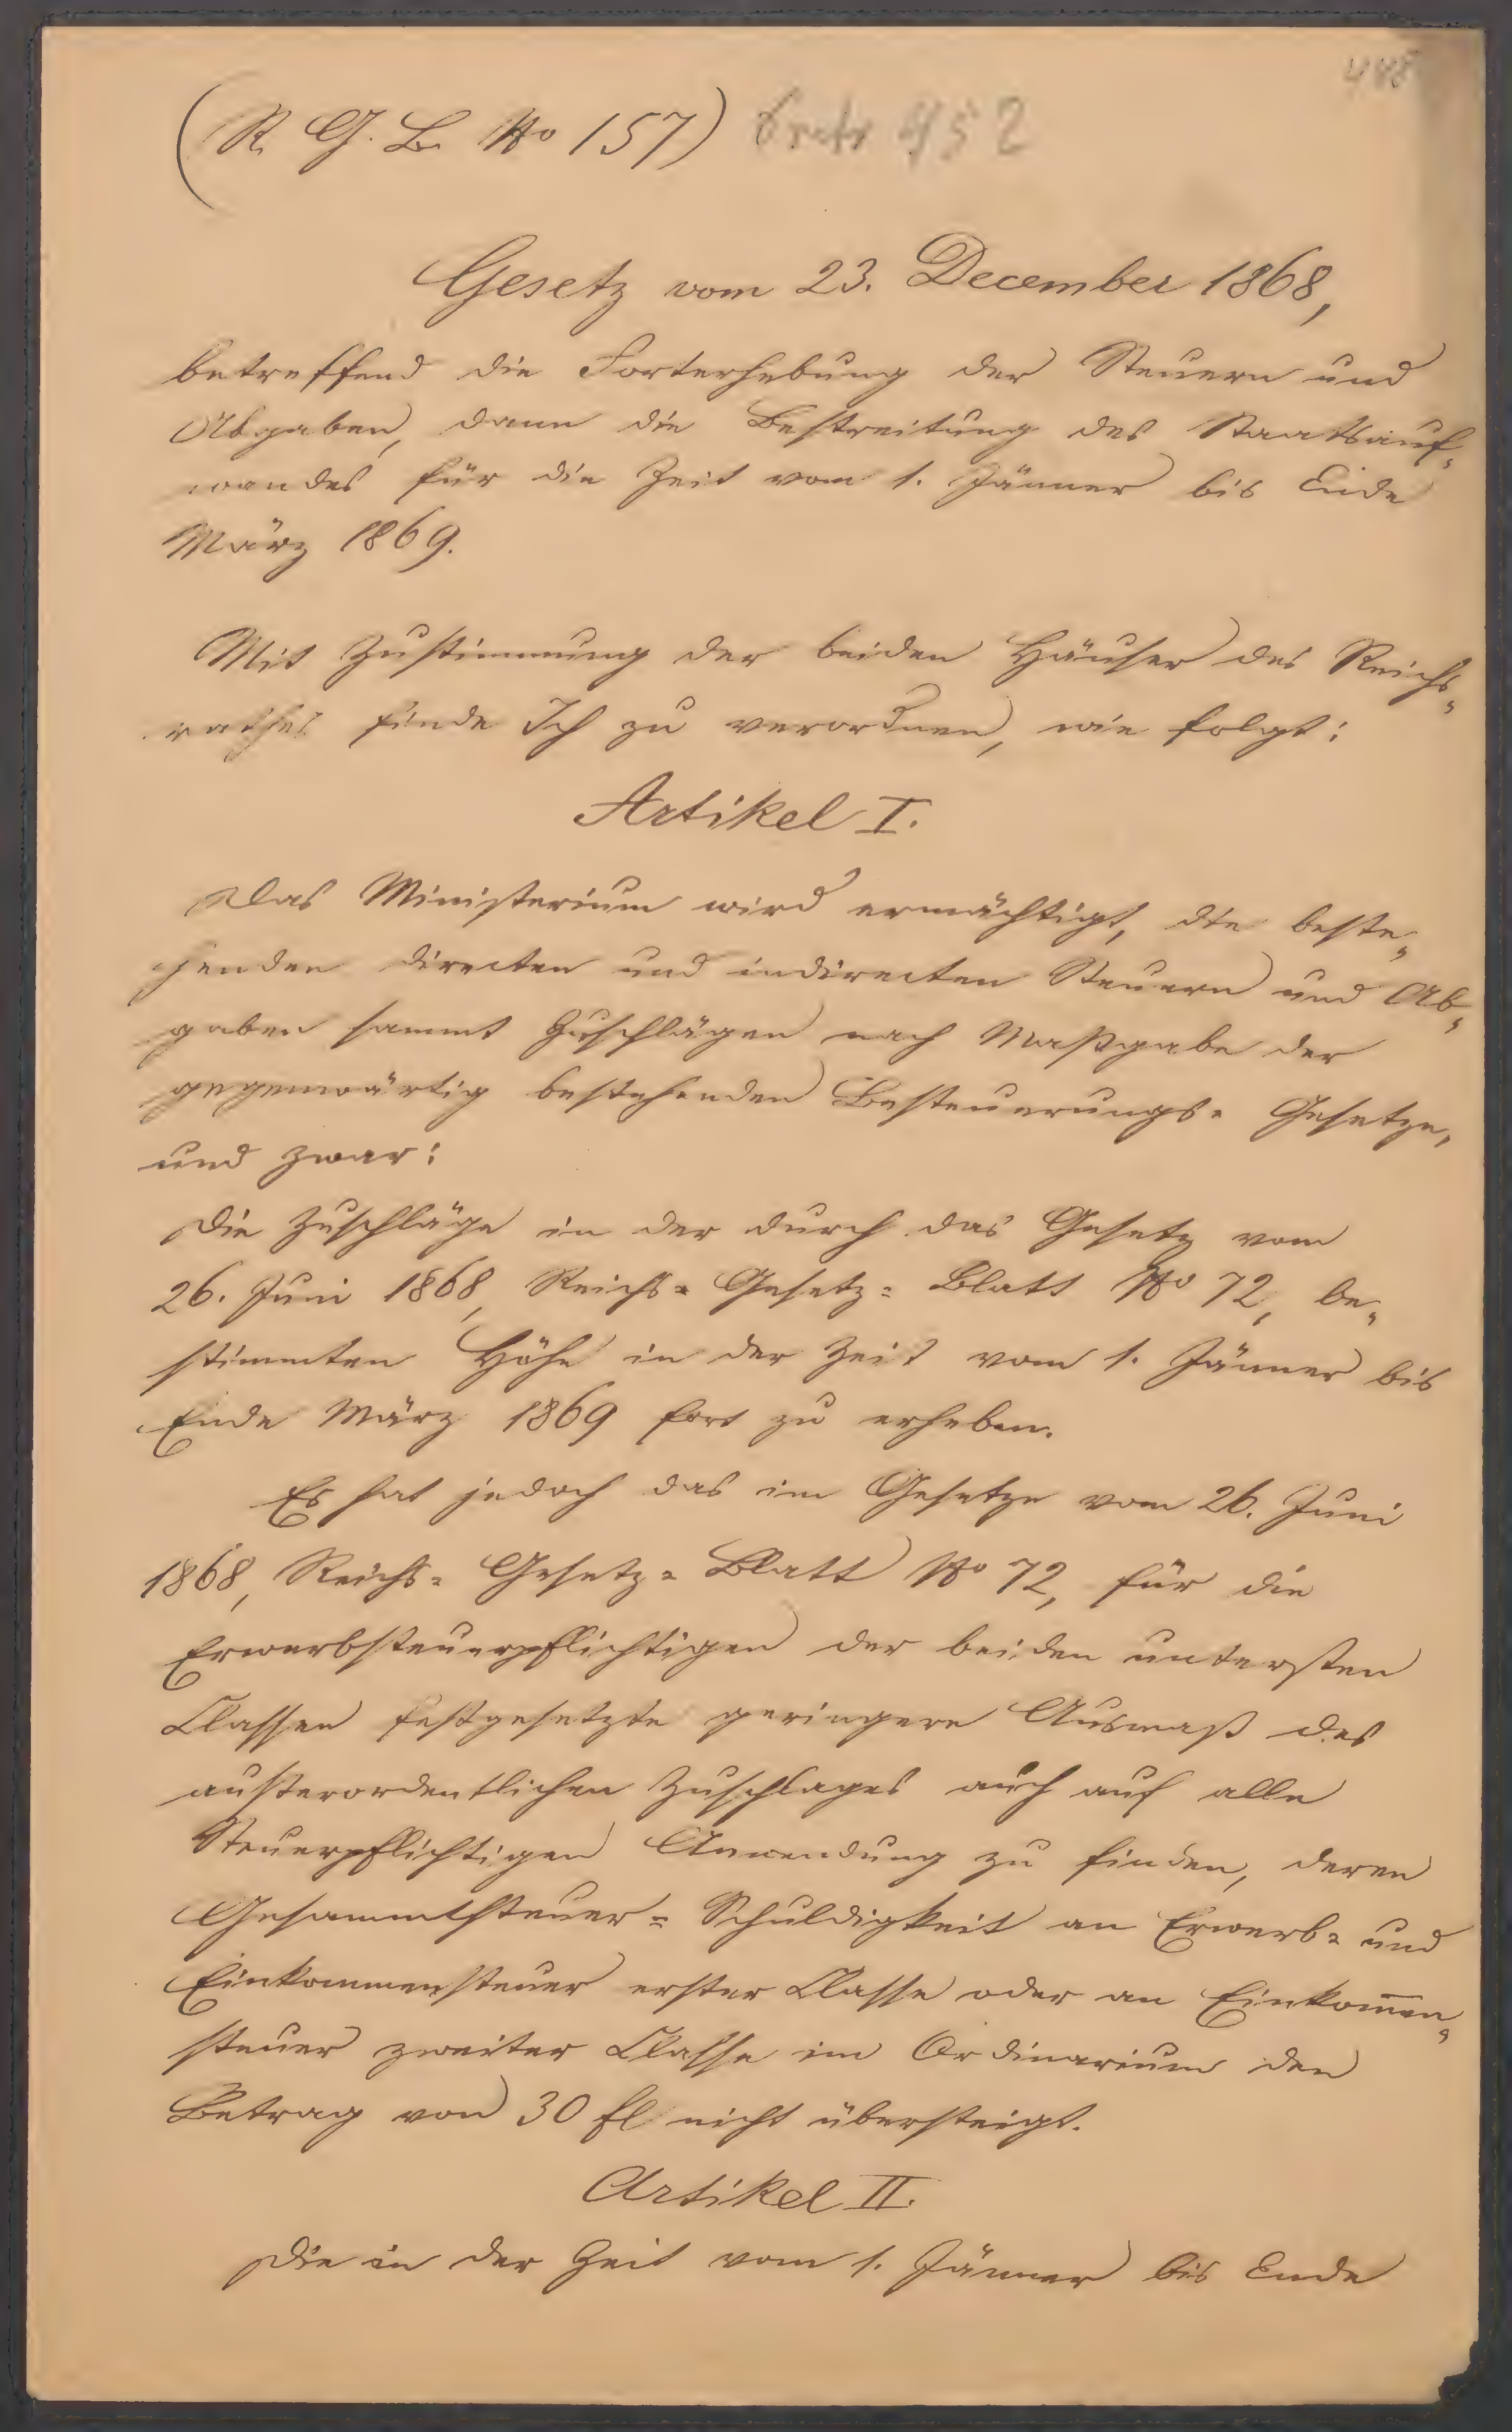 448
(R. G. B. No 157) 952
Gesetz vom 23. December 1868,
betreffend die Forterhebung der Steuern und
Abgaben, dann die Bestreitung des Staatsauf-
wandes für die Zeit vom 1. Jänner bis Ende
März 1869.
Mit Zustimmung der beiden Häuser des Reichs-
rathes finde Ich zu verordnen, wie folgt:
Artikel I.
Das Ministerium wird ermächtigt, die beste-
henden directen und indirecten Steuern und Ab-
gaben sammt Zuschlägen nach Maßgabe der
gegenwärtig bestehenden Besteuerungs-Gesetze,
und zwar:
Die Zuschläge in der durch das Gesetz vom
26. Juni 1868, Reichs-Gesetz-Blatt No 72, be-
stimmten Höhe in der Zeit vom 1. Jänner bis
Ende März 1869 fort zu erheben.
Es hat jedoch das im Gesetze vom 26. Juni
1868, Reichs-Gesetz-Blatt No 72, für die
Erwerbsteuerpflichtigen der beiden untersten
Classen festgesetzte geringere Ausmaß des
außerordentlichen Zuschlages auch auf alle
Steuerpflichtigen Anwendung zu finden, deren
Gesammtsteuer-Schuldigkeit an Erwerb- und
Einkommensteuer erster Classe oder an Einkom̄en-
steuer zweiter Classe im Ordinarium den
Betrag von 30 fl nicht übersteigt.
Artikel II.
Die in der Zeit vom 1. Jänner bis Ende